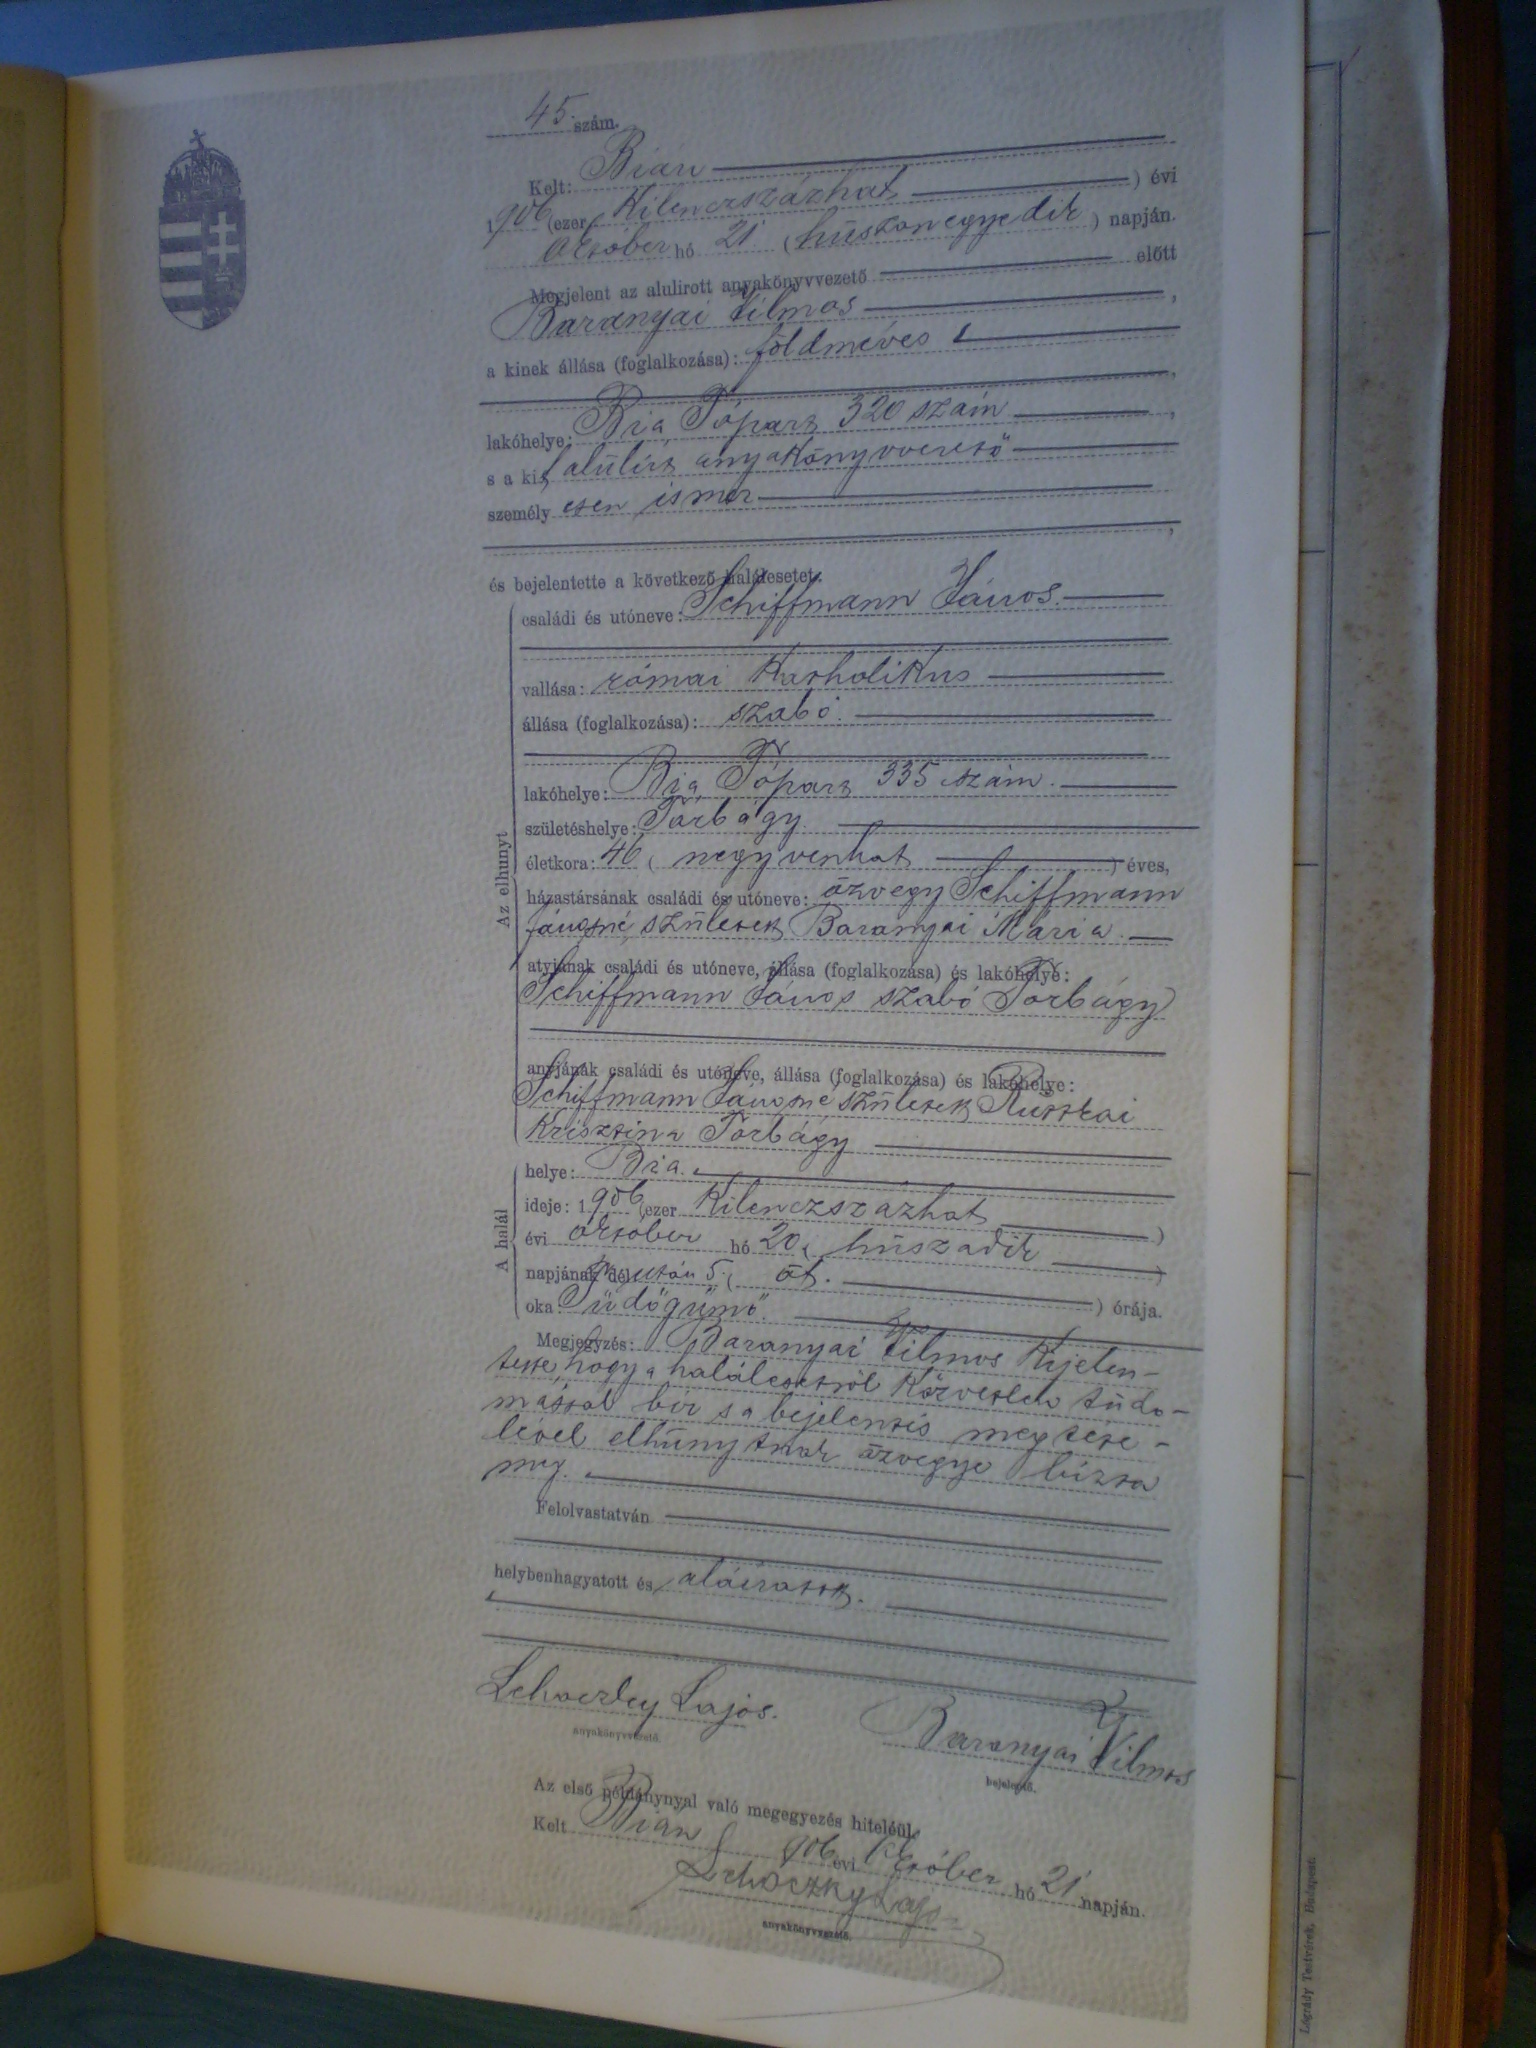 45. szám.
Kelt: Bián
1906 (ezer kilenczszázhat) évi
október hó 21 (húszonegyedik) napján.
Megjelent az alulirott anyakönyvvezető előtt
Baranyai Vilmos,
a kinek állása (foglalkozása): földmíves
lakóhelye: Bia Tópart 320 szám,
s a kit alúlírt anyakönyvvezető
személyesen ismer,
és bejelentette a következő halálesetet:
Az elhunyt
családi és utóneve: Schiffmann János.
vallása: római katholikus
állása (foglalkozása): szabó.
lakóhelye: Bia, Tópart 335 szám.
születéshelye: Torbágy
életkora: 46 (negyvenhat) éves,
házastársának családi és utóneve: özvegy Schiffmann
Jánosné, született Baranyai Mária.
atyjának családi és utóneve, állása (foglalkozása) és lakóhelye:
Schiffmann János szabó Torbágy
anyjának családi és utóneve, állása (foglalkozása) és lakóhelye:
Schiffmann Jánosné született
Krisztina Torbágy
A halál
helye: Bia.
ideje: 1906 (ezer kilenczszázhat)
évi október hó 20 (húszadik)
napjának délután 5 (öt.) órája.
oka: Tüdőgümő.
Megjegyzés: Baranyai Vilmos kijelen-
tette, hogy a halálesetről közvetlen túdo-
mással bír s a bejelentés megtéte-
lével elhúnytnak özvegye bízta
meg.
Felolvastatván
helybenhagyatott és aláíratott.
Lajos.
anyakönyvvezető.
Baranyai Vilmos
bejelentő.
Az első példánynyal való megegyezés hiteléül.
Kelt Bián 906 évi október hó 21 napján.
Lajos
anyakönyvvezető.
Légrády Testvérek, Budapest.